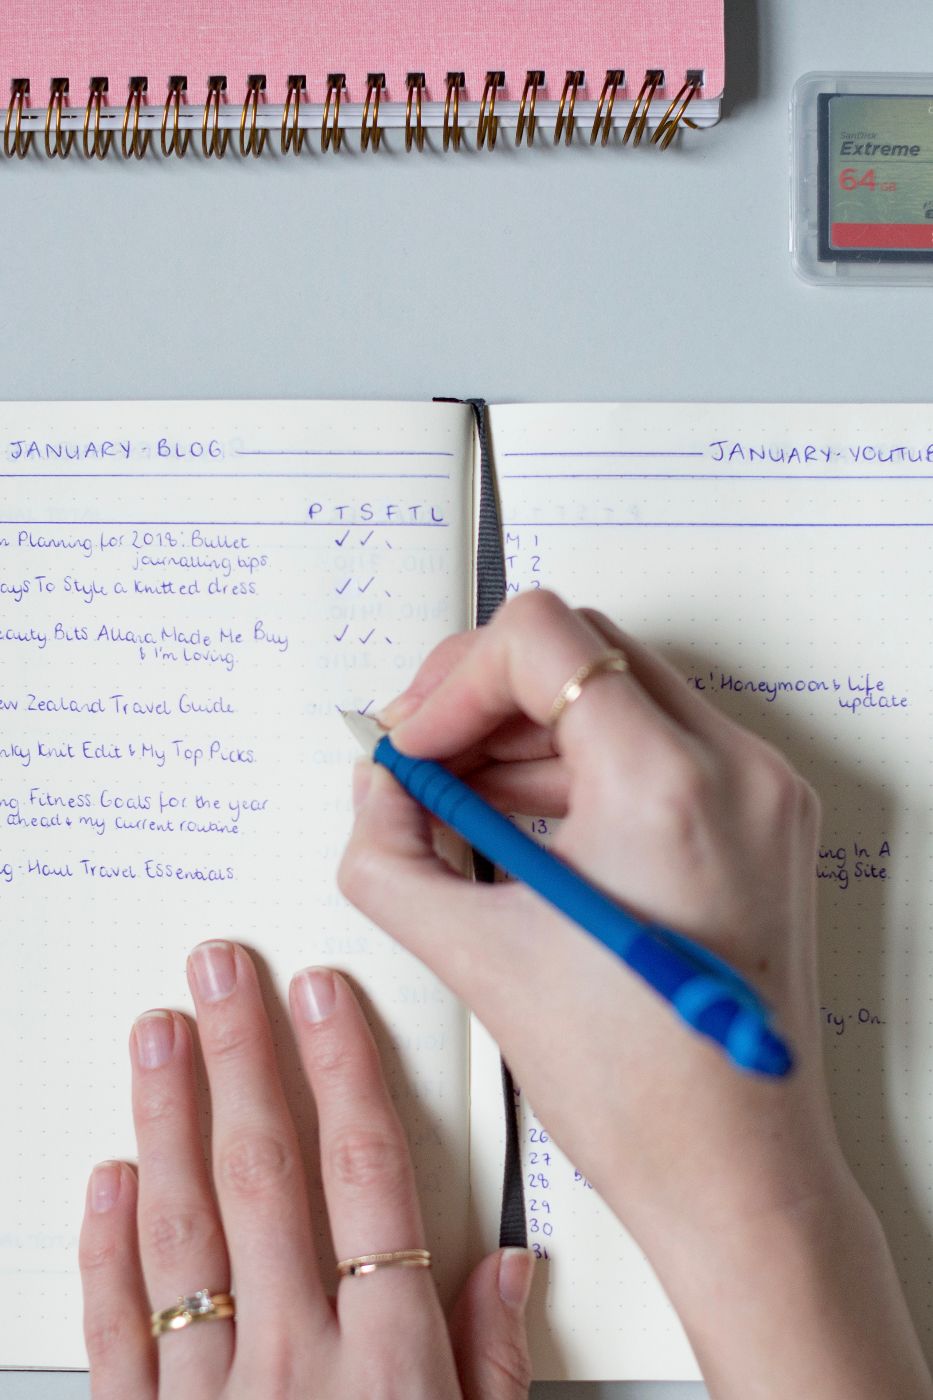 SanDisk
Extreme
64 GB
JANUARY - BLOG
P T S F T L
Planning for 2018: Bullet
journalling tips.
To Style a knitted dress.
Bits Allara Made Me Buy
& I'm Loving.
Zealand Travel Guide
Knit Edit & My Top Picks.
Fitness Goals for the year
ahead & my current routine.
Haul Travel Essentials
JANUARY - YOUTUB
M 1
T 2
W 3
Honeymoon & Life
update
13.
In A
Site.
Try-On.
26
27
28
29
30
31